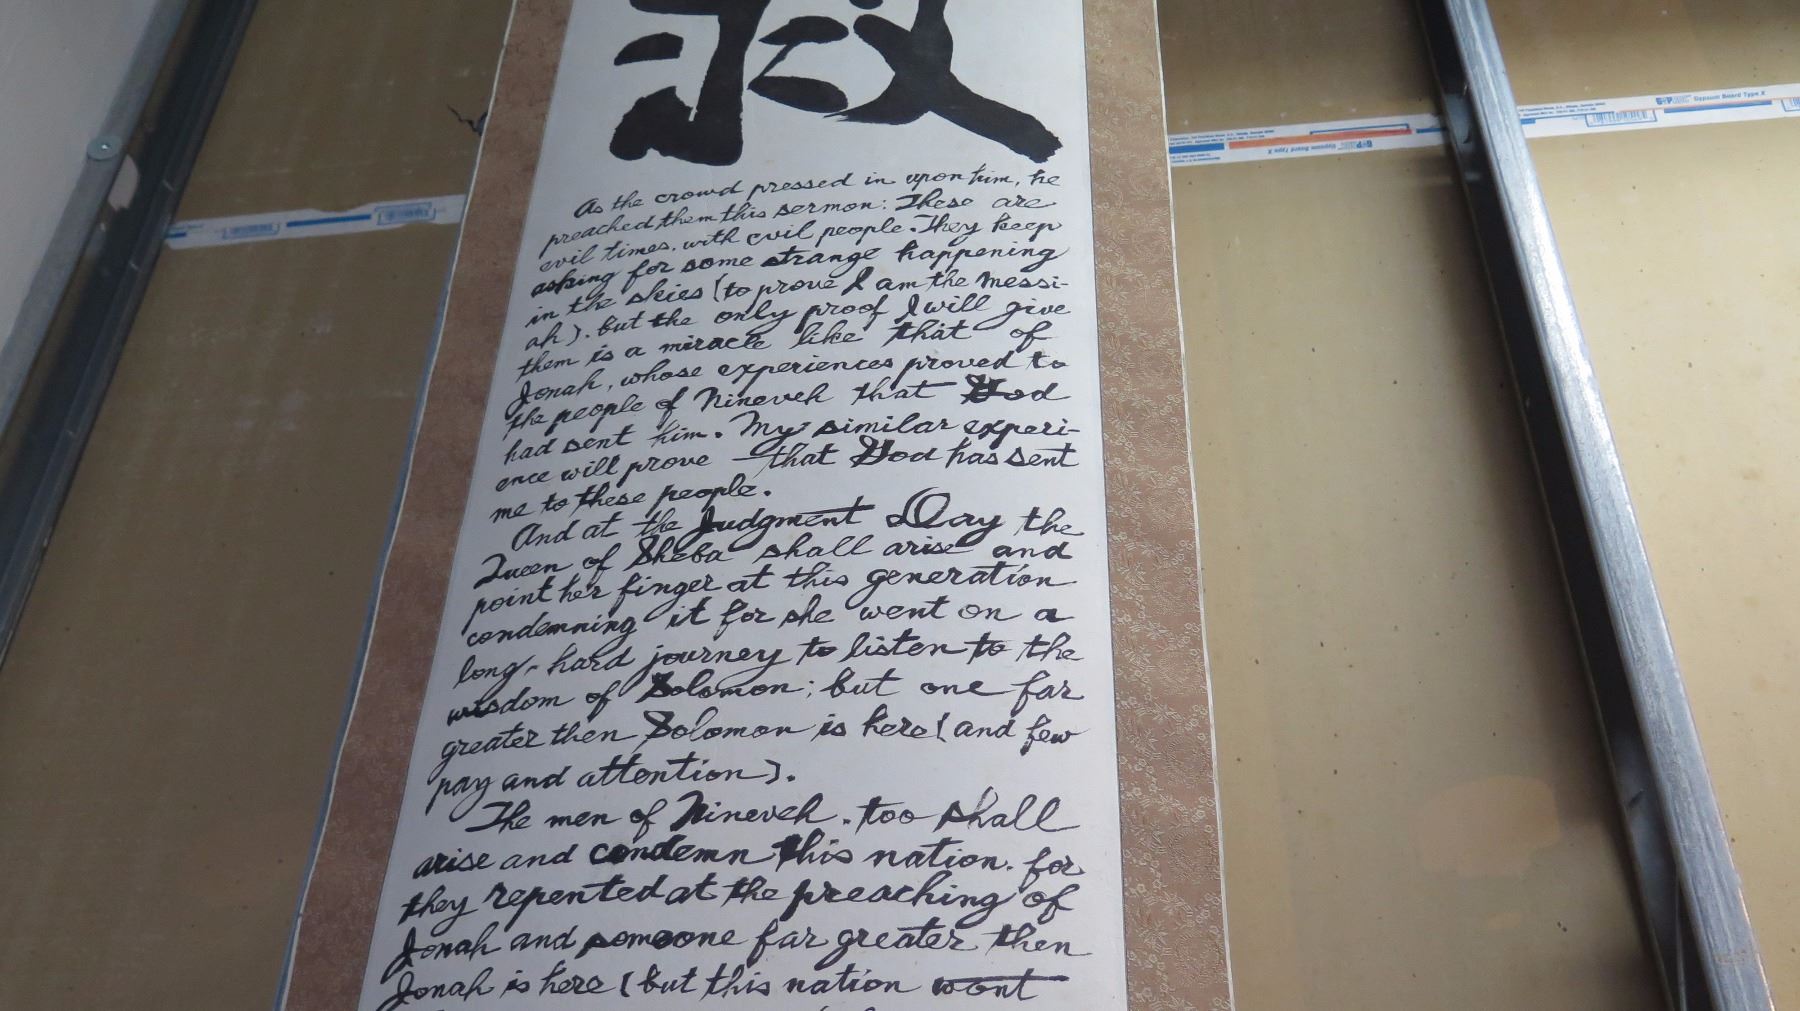 救
As the crowd pressed in upon him, he
preached them this sermon: These are
evil times. with evil people. They keep
asking for some strange happening
in the skies (to prove I am the Messi-
ah). but the only proof I will give
them is a miracle like that of
Jonah, whose experiences proved to
the people of Nineveh that God
had sent him. My similar experi-
ence will prove that God has sent
me to these people.
And at the Judgment Day the
Queen of Sheba shall arise and
point her finger at this generation
condemning it for she went on a
long, hard journey to listen to the
wisdom of Solomon; but one far
greater then Solomon is here (and few
pay and attention).
The men of Nineveh. too shall
arise and condemn this nation. for
they repented at the preaching of
Jonah and someone far greater then
Jonah is here (but this nation wont
GP Gypsum Board Type X
GP Gypsum Board Type X